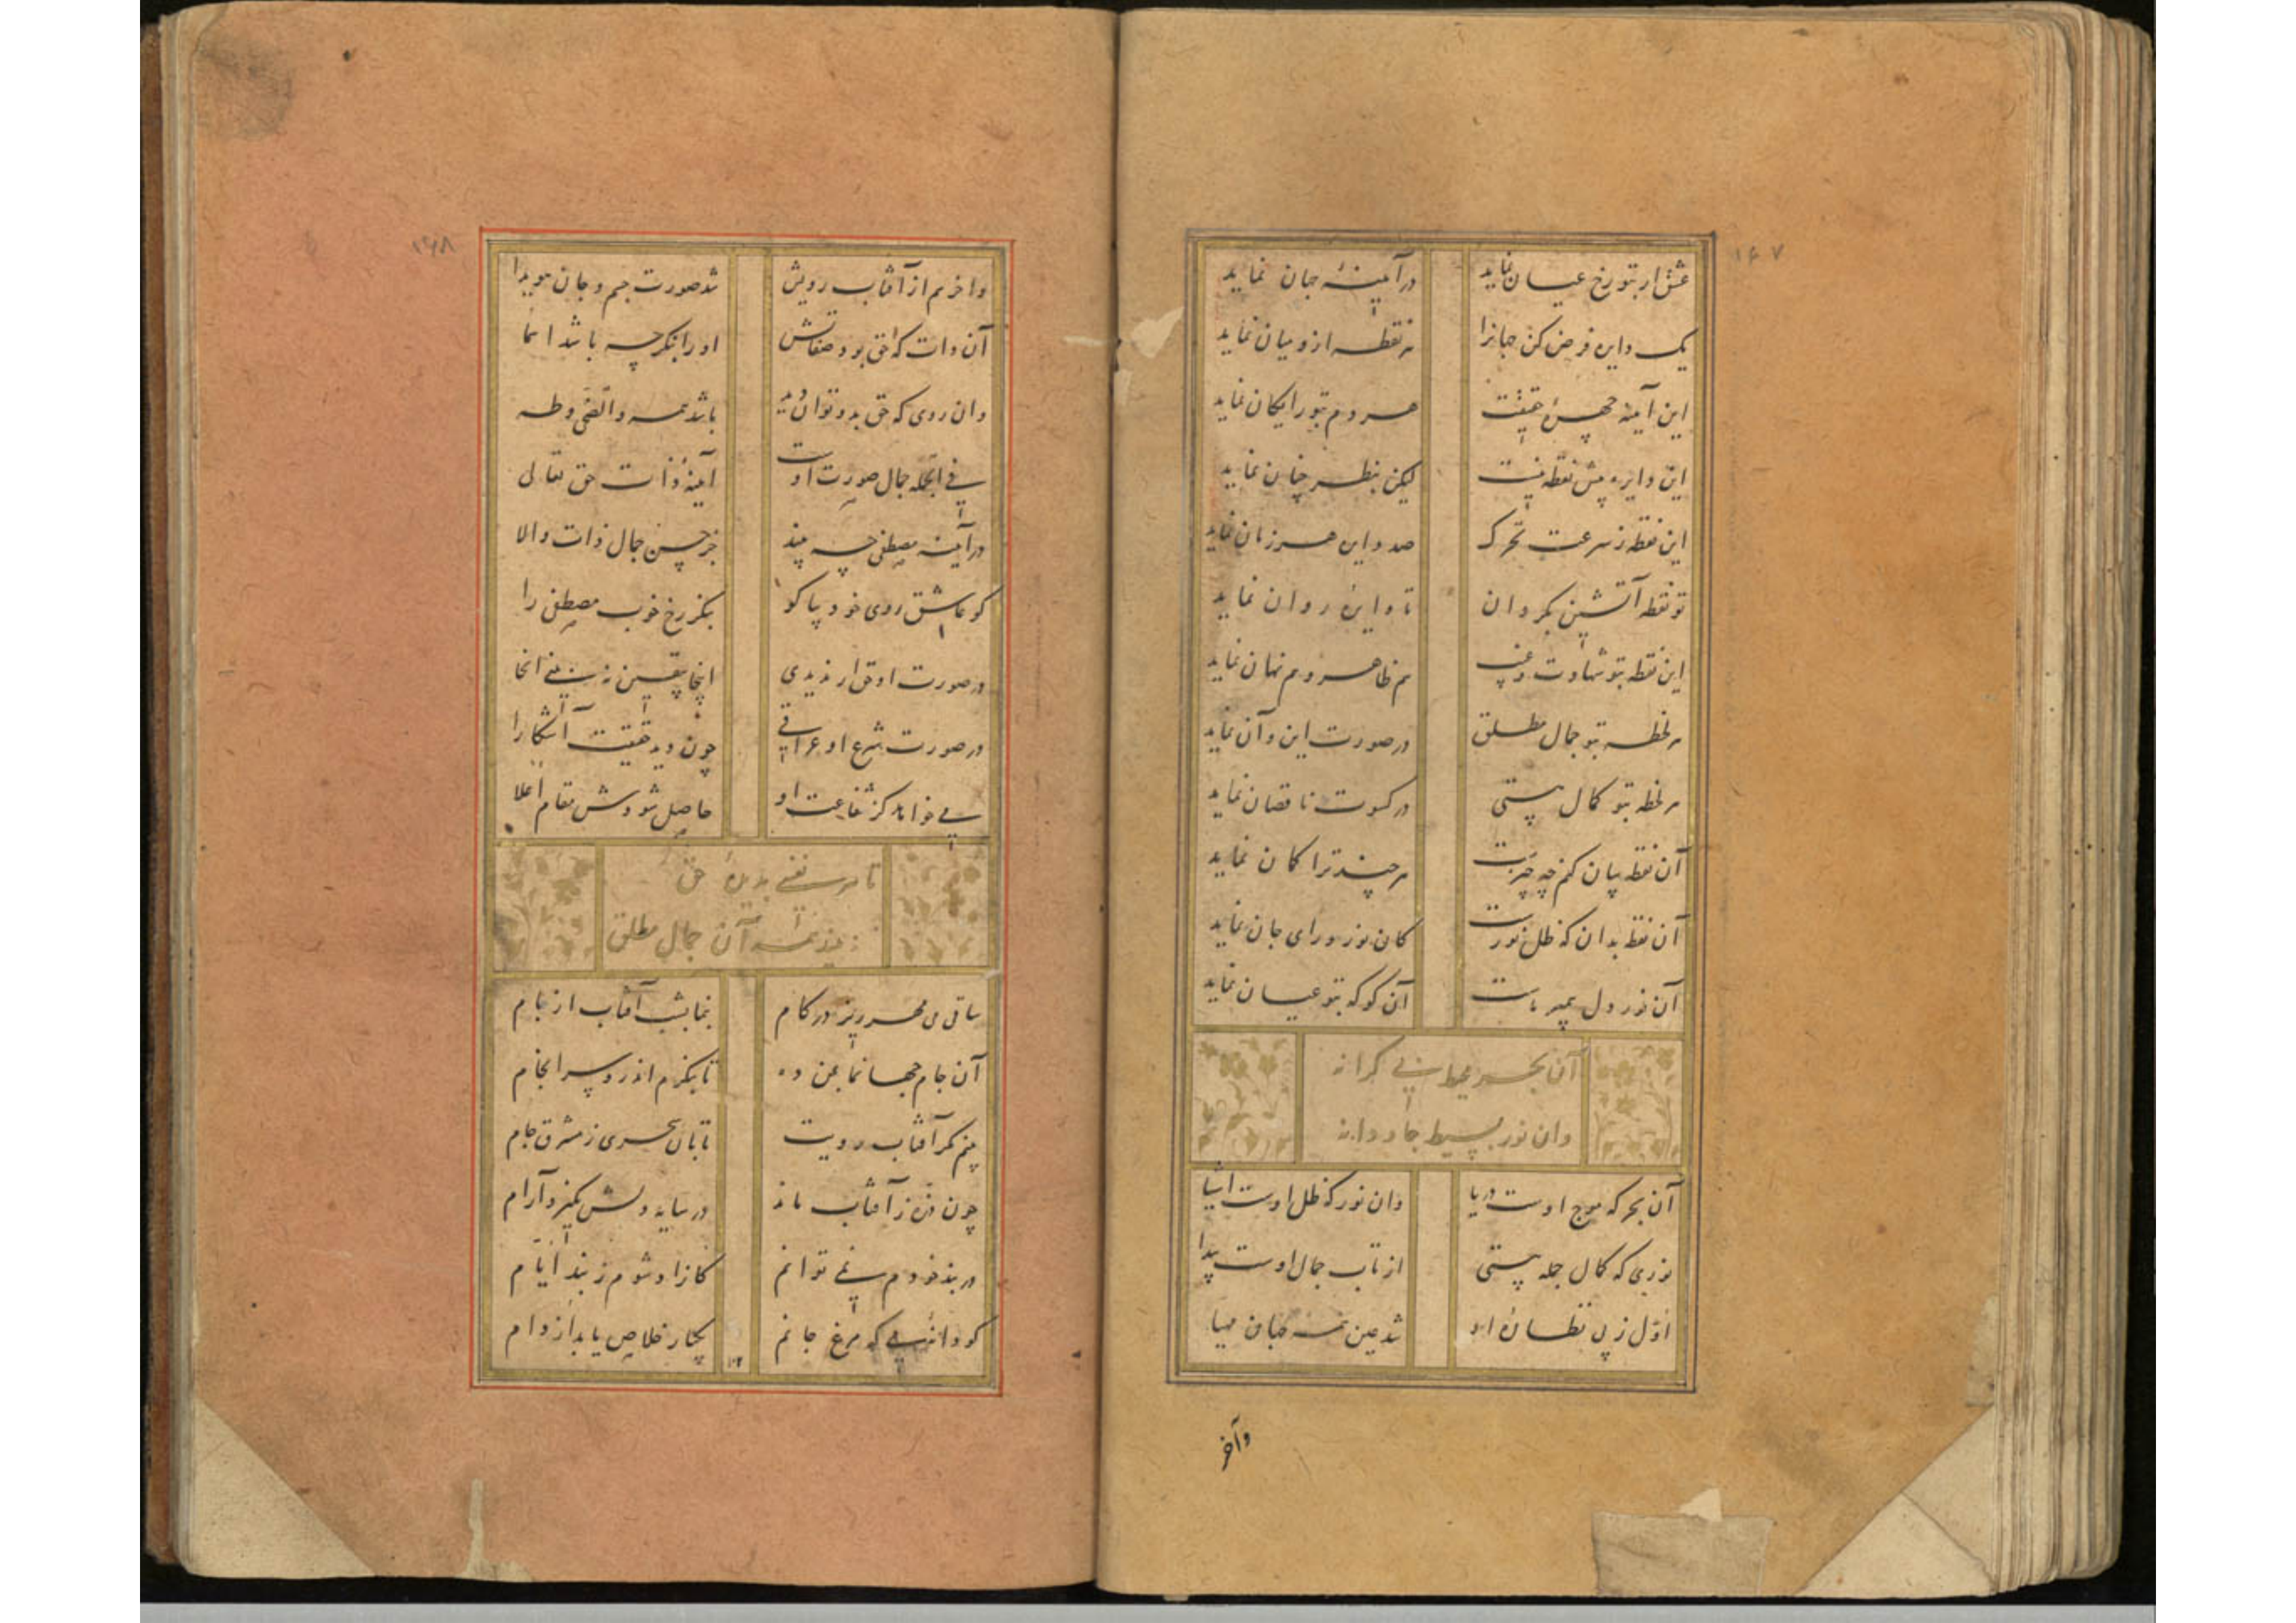 ۱۶۷
عشق ار بتو رخ عیان نماید
در آیینهٔ جهان نماید
یک دایره فرض کن جهانرا
هر نقطه ازو میان نماید
این آینه چهرهٔ حقیقت
هر دم بتو رایکان نماید
این دایره بیش نقطه نیست
لیکن بنظر چنان نماید
این نقطه ز سرعت تحرک
صد دایره هر زمان نماید
تو نقطه آتشین بگردان
تا دایرهٔ روان نماید
این نقطه بتو شهادت و غیب
هم ظاهر و هم نهان نماید
هر لحظه بتو جمال مطلق
در صورت این و آن نماید
هر لحظه بتو کمال هستی
در کسوت ناقصان نماید
آن نقطه بیان کنم چه چیزست
هر چند ترا کمان نماید
آن نقطه بدان که ظل نورست
کان نور ورای جان نماید
آن نور دل پیمبر ماست
آن کو که بتو عیان نماید
آن بحر محیط بی کرانه
وان نور بسیط جاودانه
آن بحر که موج اوست دریا
وان نور که ظل اوست اشیا
نوری که کمال جمله هستی
از تاب جمال اوست پیدا
اول ز پی نظارهٔ او
شد عین همه جهان مهیا
وآخر
۱۶۸
وآخر هم از آفتاب رویش
شد صورت جسم و جان هویدا
آن ذات که حق بود صفاتش
او را بنکر چه باشد اسما
وان روی که حق بدو توان دید
باشد همه والضحی و طه
فی الجمله جمال صورت اوست
آینهٔ ذات حق تعالی
در آینه مصطفی چه بیند
جز حسن جمال ذات والا
کو عاشق روی خود بیا کو
بنکر رخ خوب مصطفی را
در صورت او حق ار ندیدی
اینجا بیقین نه بینی آنجا
در صورت شرع او عراقی
چون دید حقیقت آشکارا
می خواهد کز شفاعت او
حاصل شودش مقام اعلا
تا هر نفسی بدیدهٔ حق
بیند همه آن جمال مطلق
ساقی می مهر ریز در کام
بنما بشب آفتاب از بام
آن جام جهان نما بمن ده
تا بنکرم اندرو سرانجام
بینم مکر آفتاب رویت
تابان سحری ز مشرق جام
چون ذره ز آفتاب ماند
در سایه دلش نکیرد آرام
در بند خودم نمی توانم
کازاد شوم ز بند ایام
کو دانهٔ می که مرغ جانم
یکبار خلاص یابد از دام